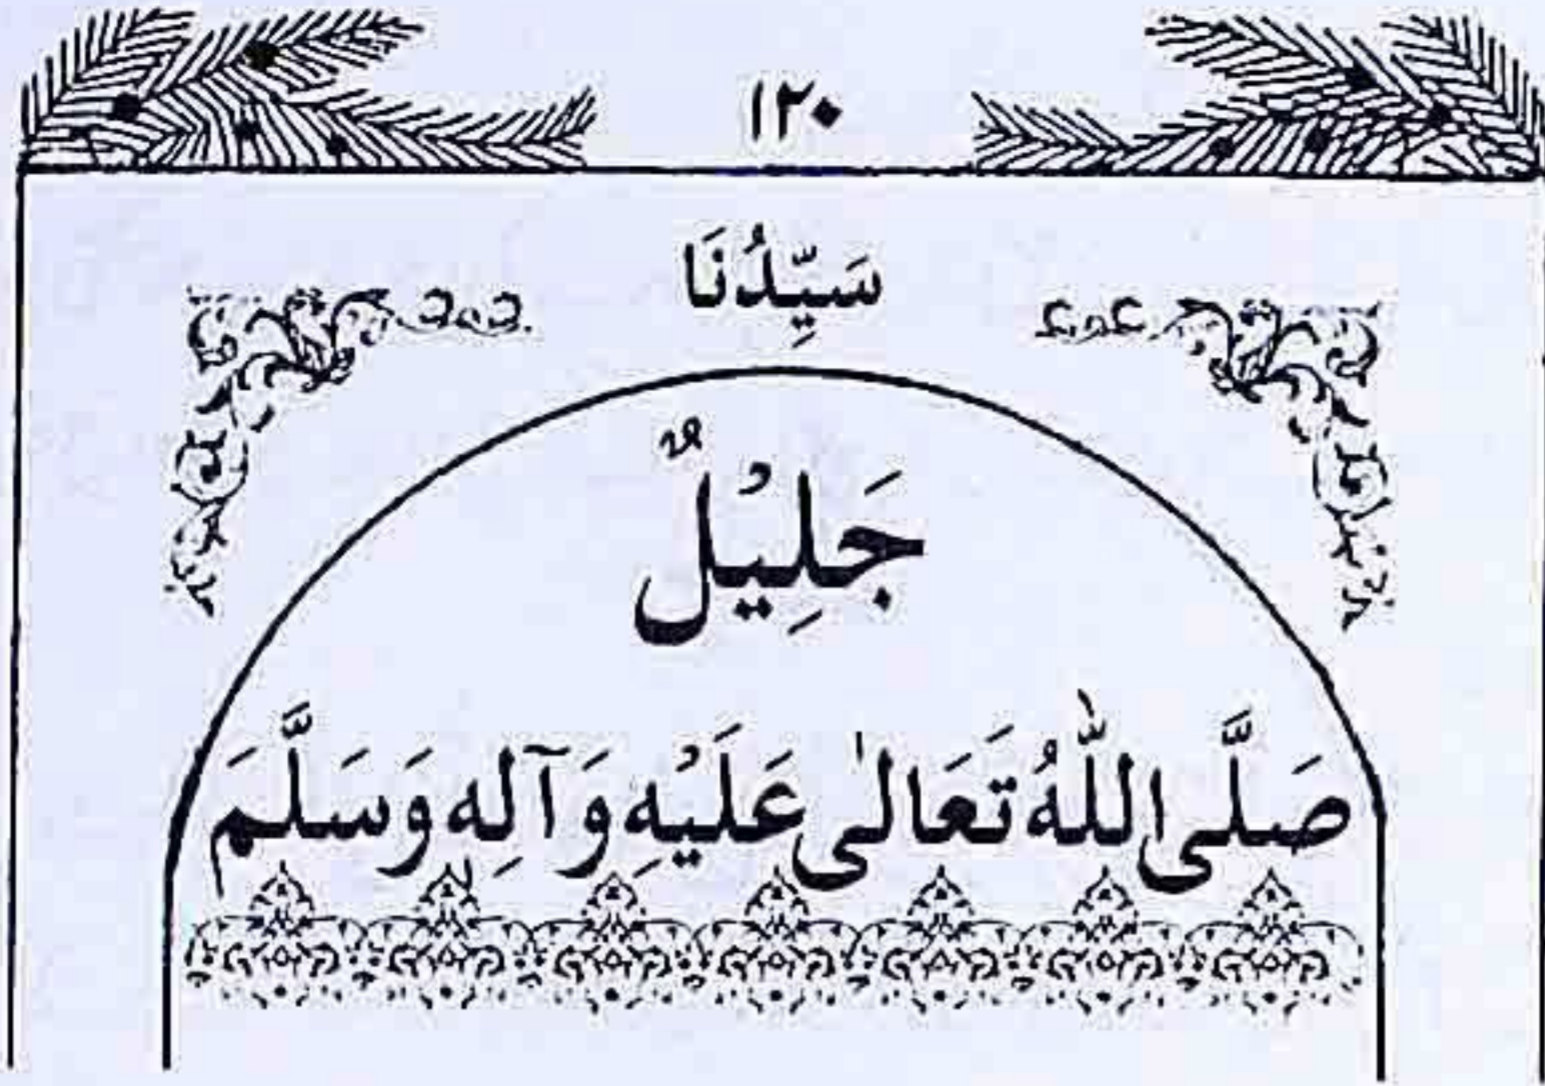 ۱۲۰
سَيِّدُنَا
جَلِيْلٌ
صَلَّى اللّٰهُ تَعَالٰى عَلَيْهِ وَآلِهٖ وَسَلَّمَ